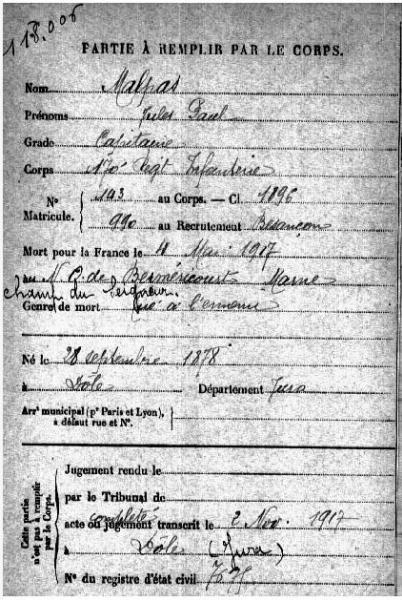 118.006
PARTIE À REMPLIR PAR LE CORPS.
Nom Malpas
Prénoms Jules Paul
Grade Capitaine
Corps 170e Regt Infanterie
N° Matricule. 143 au Corps. — Cl. 1896
990 au Recrutement Besançon
Mort pour la France le 4 Mai 1917
au N. O. de Berméricourt Marne
champ du Seigneur
Genre de mort tué à l'ennemi
Né le 28 septembre 1878
à Dôle Département Jura
Arrt municipal (pr Paris et Lyon),
à défaut rue et N°.
Cette partie n'est pas à remplir par le Corps.
Jugement rendu le
par le Tribunal de
complété
acte ou jugement transcrit le 2 Nov. 1917
à Dôle (Jura)
N° du registre d'état civil